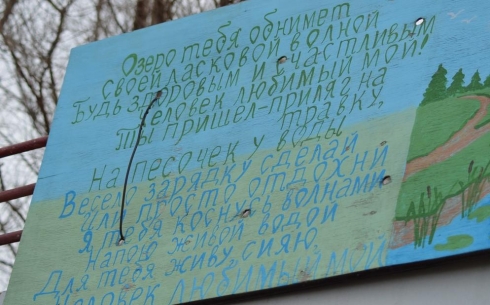 Озеро тебя обнимет
своей ласковой волной
Будь здоровым и счастливым
Человек любимый мой!
Ты пришел-приляг на
травку,
На песочек у воды
Весело зарядку сделай
Или просто отдохни
Я тебя коснусь волнами
Напою живой водой
Для тебя живу, сияю,
Человек любимый мой